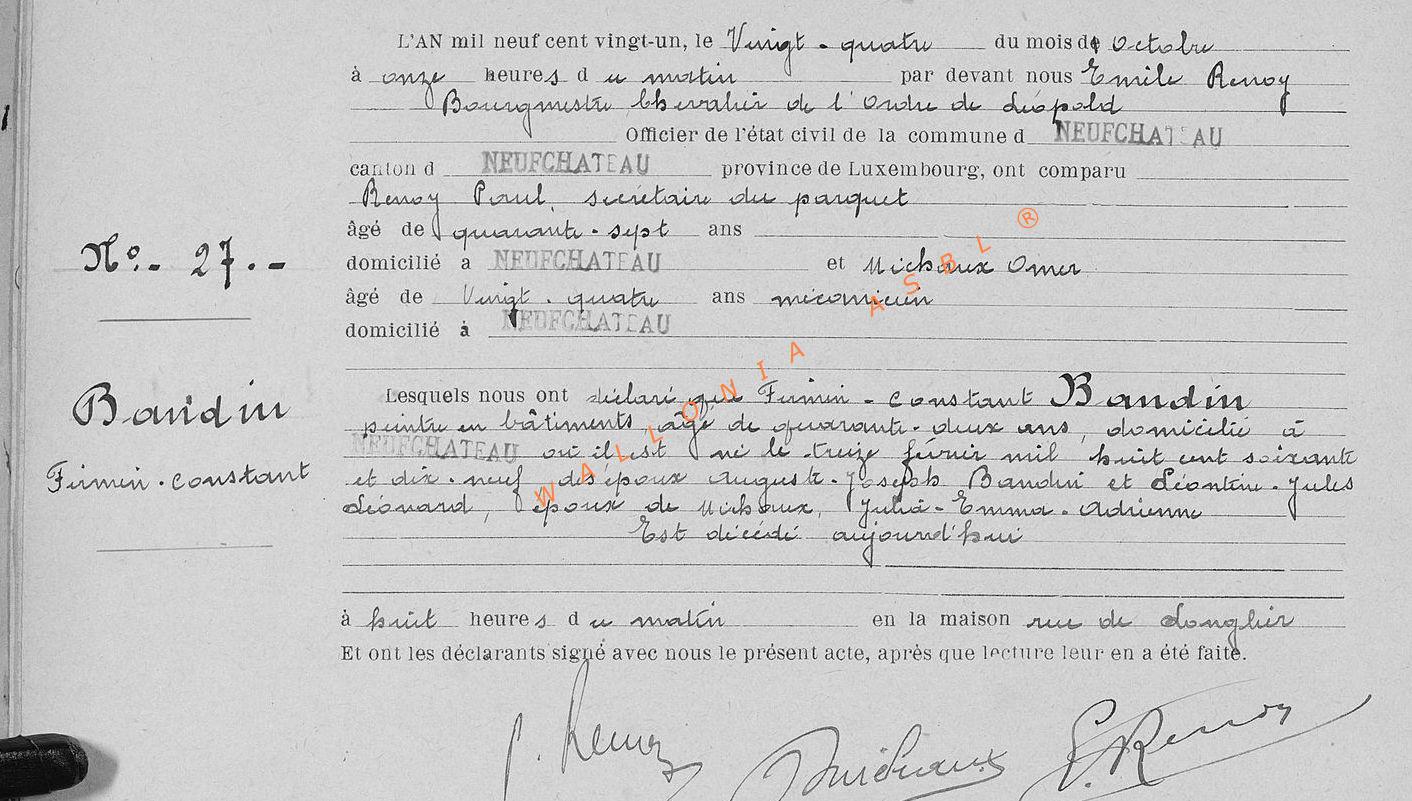 L'AN mil neuf cent vingt-un, le Vingt-quatre du mois d'Octobre
à onze heures du matin par devant nous Emile Renoy
Bourgmestre Chevalier de l'Ordre de Léopold
Officier de l'état civil de la commune d NEUFCHATEAU
canton d NEUFCHATEAU province de Luxembourg, ont comparu
Renoy Paul, secrétaire du parquet
âgé de quarante-sept ans
Nº.- 27.-
domicilié a NEUFCHATEAU et Michaux Omer
âgé de Vingt-quatre ans mécanicien
domicilié à NEUFCHATEAU
Lesquels nous ont déclaré que Firmin-Constant Baudin
Baudin
peintre en bâtiments, âgé de quarante-deux ans, domicilié à
NEUFCHATEAU où il est né le treize février mil huit cent soixante
Firmin-Constant
et dix-neuf des époux Auguste-Joseph Baudin et Léontine-Jules
Léonard, époux de Michaux, Julia-Emma-Adrienne
Est décédé aujourd'hui
à huit heures du matin en la maison rue de Longlier
Et ont les déclarants signé avec nous le présent acte, après que lecture leur en a été faite.
P. Renoy Michaux E. Renoy
WALLONIA ASBL ®